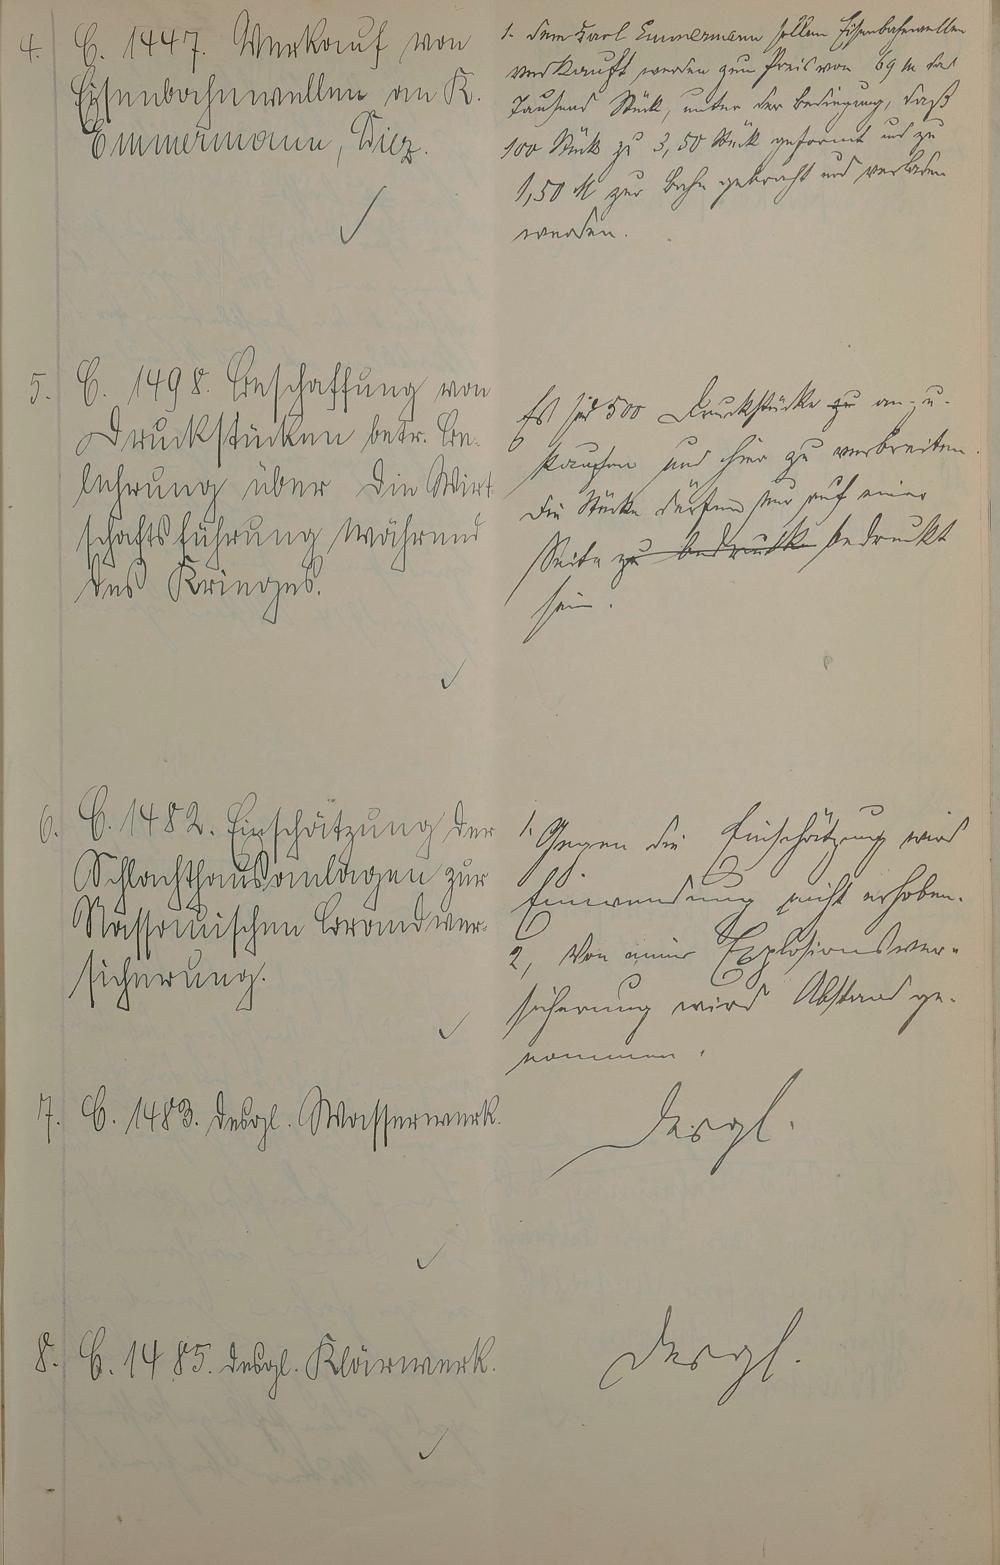 4. C. 1447. Verkauf von
Eisenbahnwellen an K.
Emmermann, Diez.
1. Dem Karl Emmermann sollen Eisenbahnwellen
verkauft werden zum Preis von 69 M das
Tausend Stück, unter der Bedingung, daß
100 Stück zu 3,50 Stück geformt und zu
1,50 M zur Bahn gebracht und verladen
werden.
5. C. 1498. Beschaffung von
Druckstücken betr. Be-
lehrung über die Wirt-
schaftsführung während
des Krieges.
Es sind 500 Druckstücke zu an- u.
kaufen und hier zu verbreiten.
Die Stücke dürfen nur auf einer
Seite zu bedrucken bedruckt
sein.
6. C. 1482. Einschätzung der
Schlachthausanlagen zur
Nassauischen Brandver-
sicherung.
1. Gegen die Einschätzung wird
Einwendung nicht erhoben.
2, Von einer Explosionsver-
sicherung wird Abstand ge-
nommen.
7. C. 1483. desgl. Wasserwerk.
desgl.
8. C. 1485. desgl. Klärwerk.
desgl.